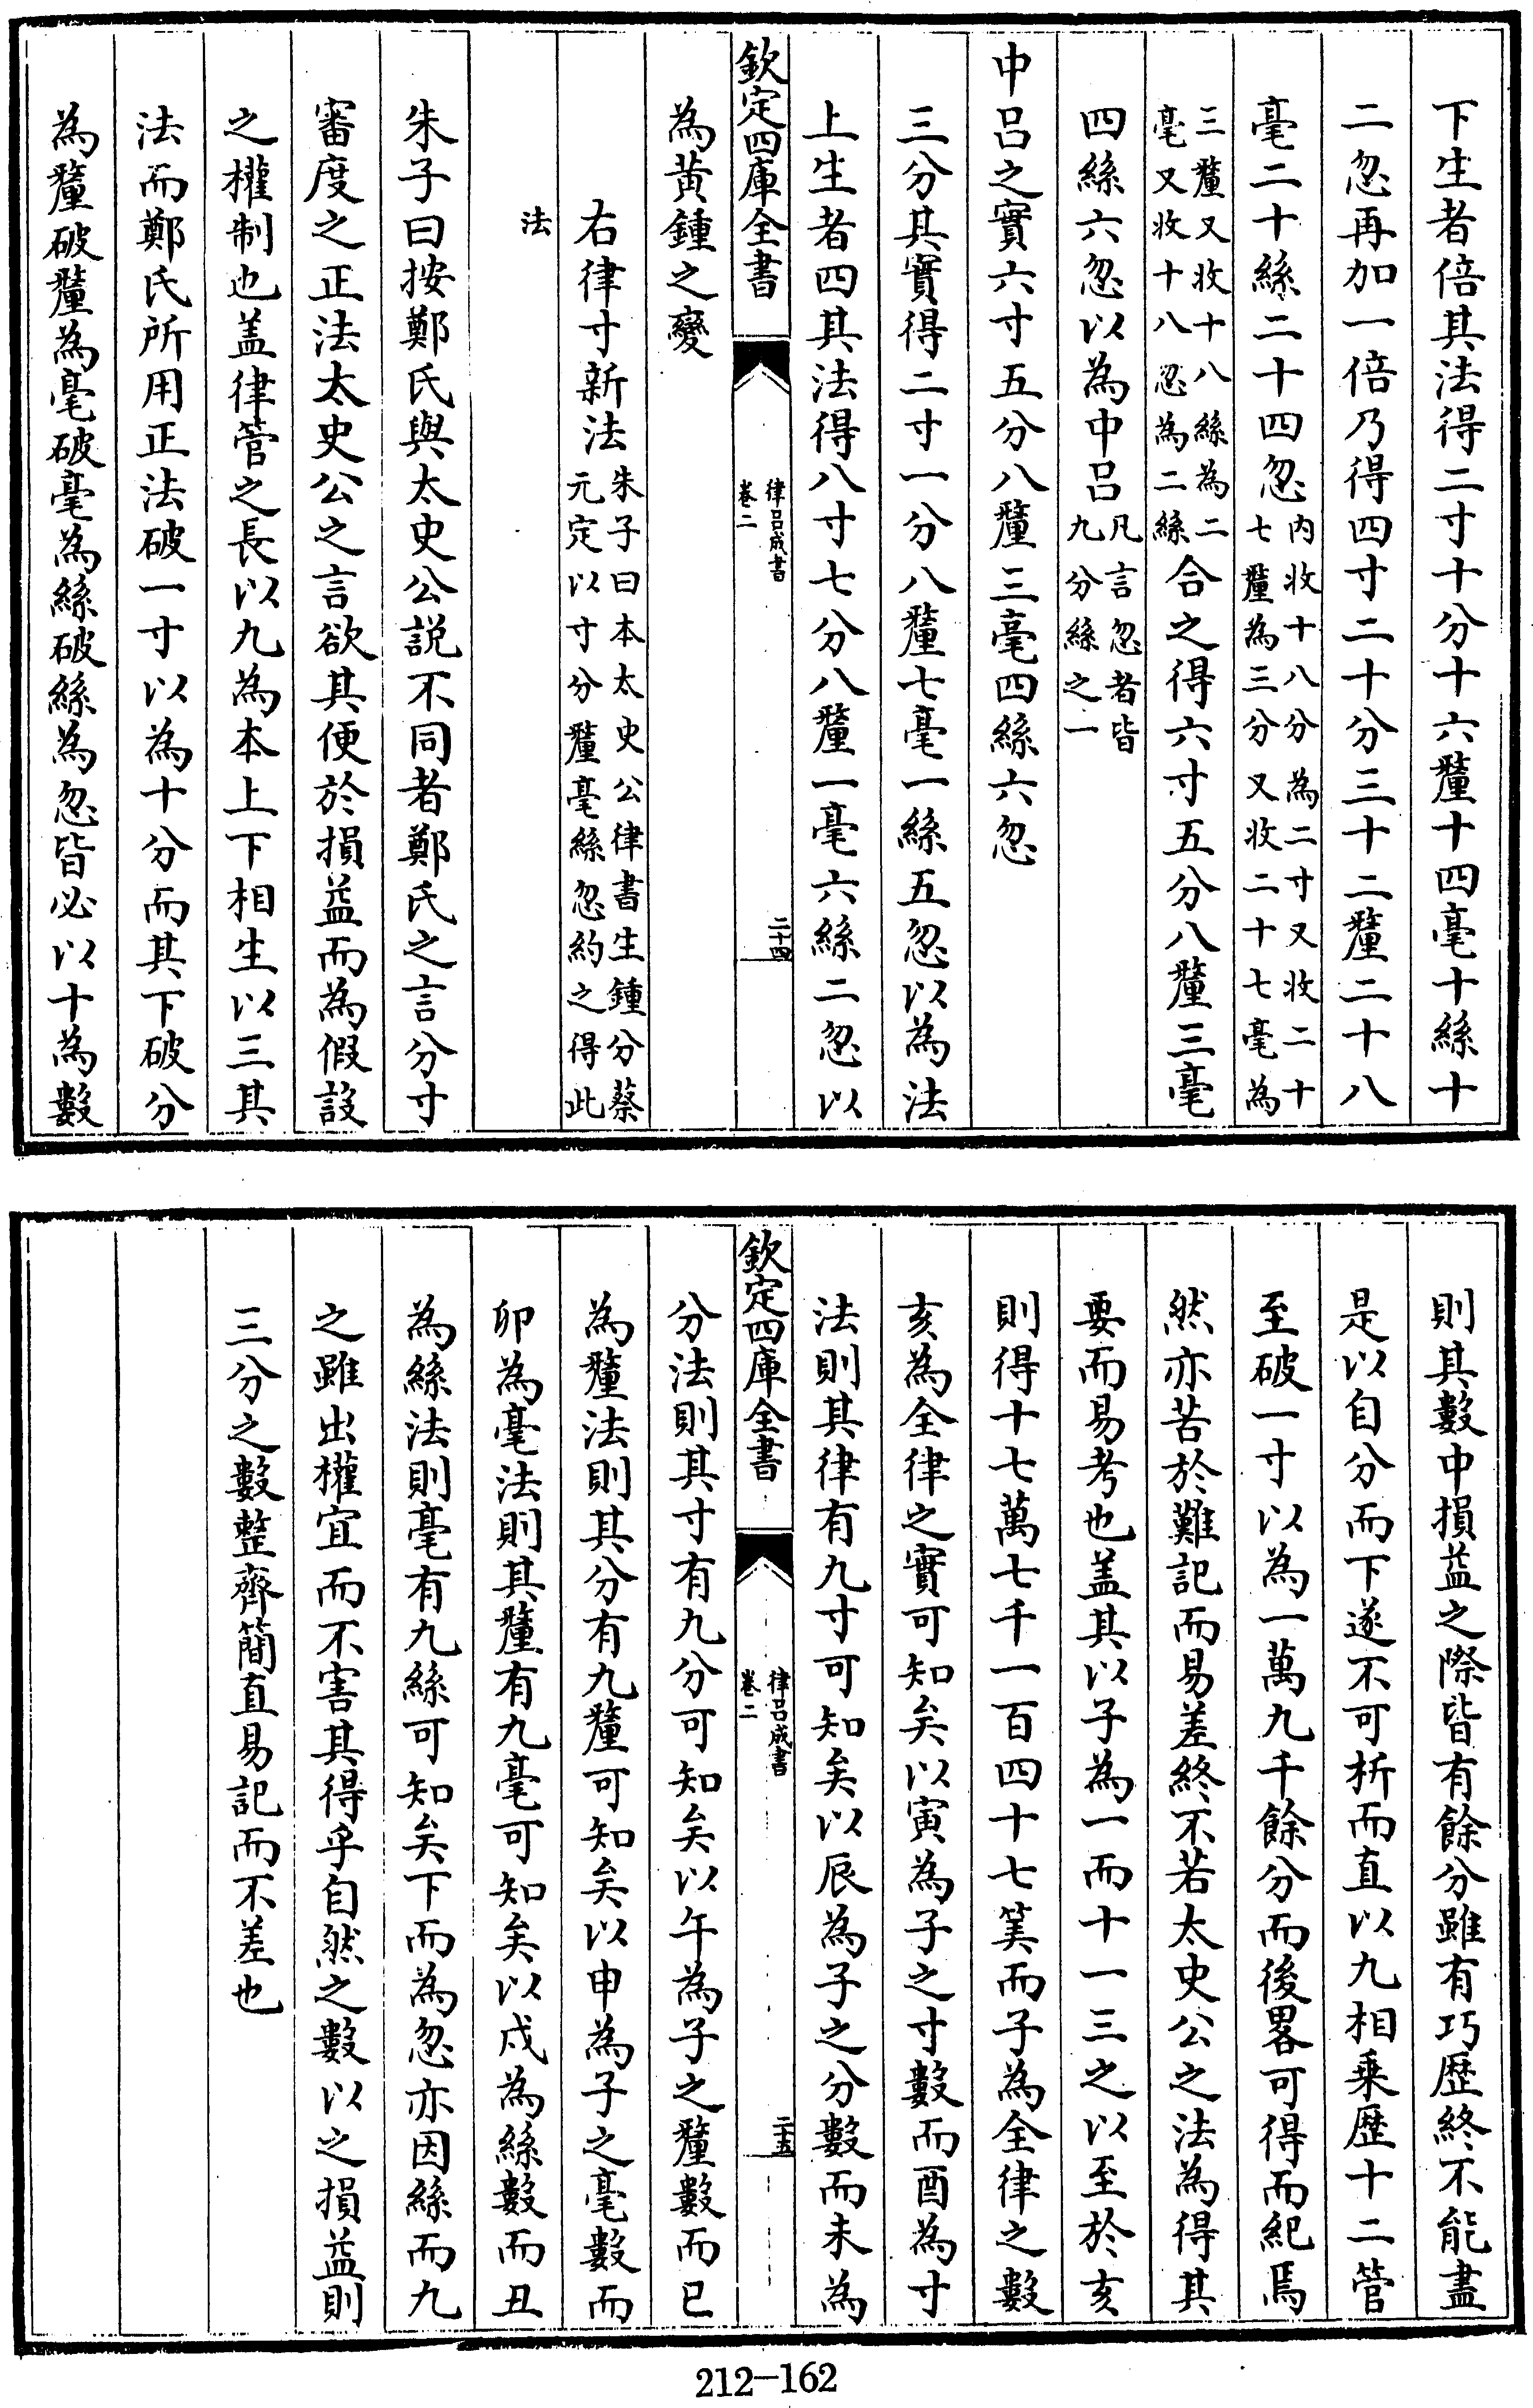 下生者倍其法得二寸十分十六釐十四毫十絲十
二忽再加一倍乃得四寸二十分三十二釐二十八
毫二十絲二十四忽内收十八分為二寸又收二十
七釐為三分又收二十七毫為
三釐又收十八絲為二
毫又收十八忽為二絲合之得六寸五分八釐三毫
四絲六忽以為中呂凡言忽者皆
九分絲之一
中呂之實六寸五分八釐三毫四絲六忽
三分其實得二寸一分八釐七毫一絲五忽以為法
上生者四其法得八寸七分八釐一毫六絲二忽以
欽定四庫全書
律呂成書
卷二
二十四
為黃鍾之變
右律寸新法朱子曰本太史公律書生鍾分蔡
元定以寸分釐毫絲忽約之得此
法
朱子曰按鄭氏與太史公説不同者鄭氏之言分寸
審度之正法太史公之言欲其便於損益而為假設
之權制也盖律管之長以九為本上下相生以三其
法而鄭氏所用正法破一寸以為十分而其下破分
為釐破釐為毫破毫為絲破絲為忽皆必以十為數
則其數中損益之際皆有餘分雖有巧歷終不能盡
是以自分而下遂不可析而直以九相乗歷十二管
至破一寸以為一萬九千餘分而後畧可得而紀焉
然亦苦於難記而易差終不若太史公之法為得其
要而易考也盖其以子為一而十一三之以至於亥
則得十七萬七千一百四十七筭而子為全律之數
亥為全律之實可知矣以寅為子之寸數而酉為寸
法則其律有九寸可知矣以辰為子之分數而未為
欽定四庫全書
律呂成書
卷二
二十五
分法則其寸有九分可知矣以午為子之釐數而巳
為釐法則其分有九釐可知矣以申為子之毫數而
卯為毫法則其釐有九毫可知矣以戍為絲數而丑
為絲法則毫有九絲可知矣下而為忽亦因絲而九
之雖出權宜而不害其得乎自然之數以之損益則
三分之數整齊簡直易記而不差也
212-162